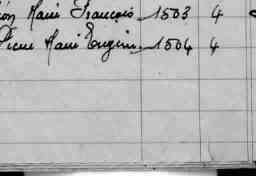 Marie François 1503 4
Marie Eugène 1504 4